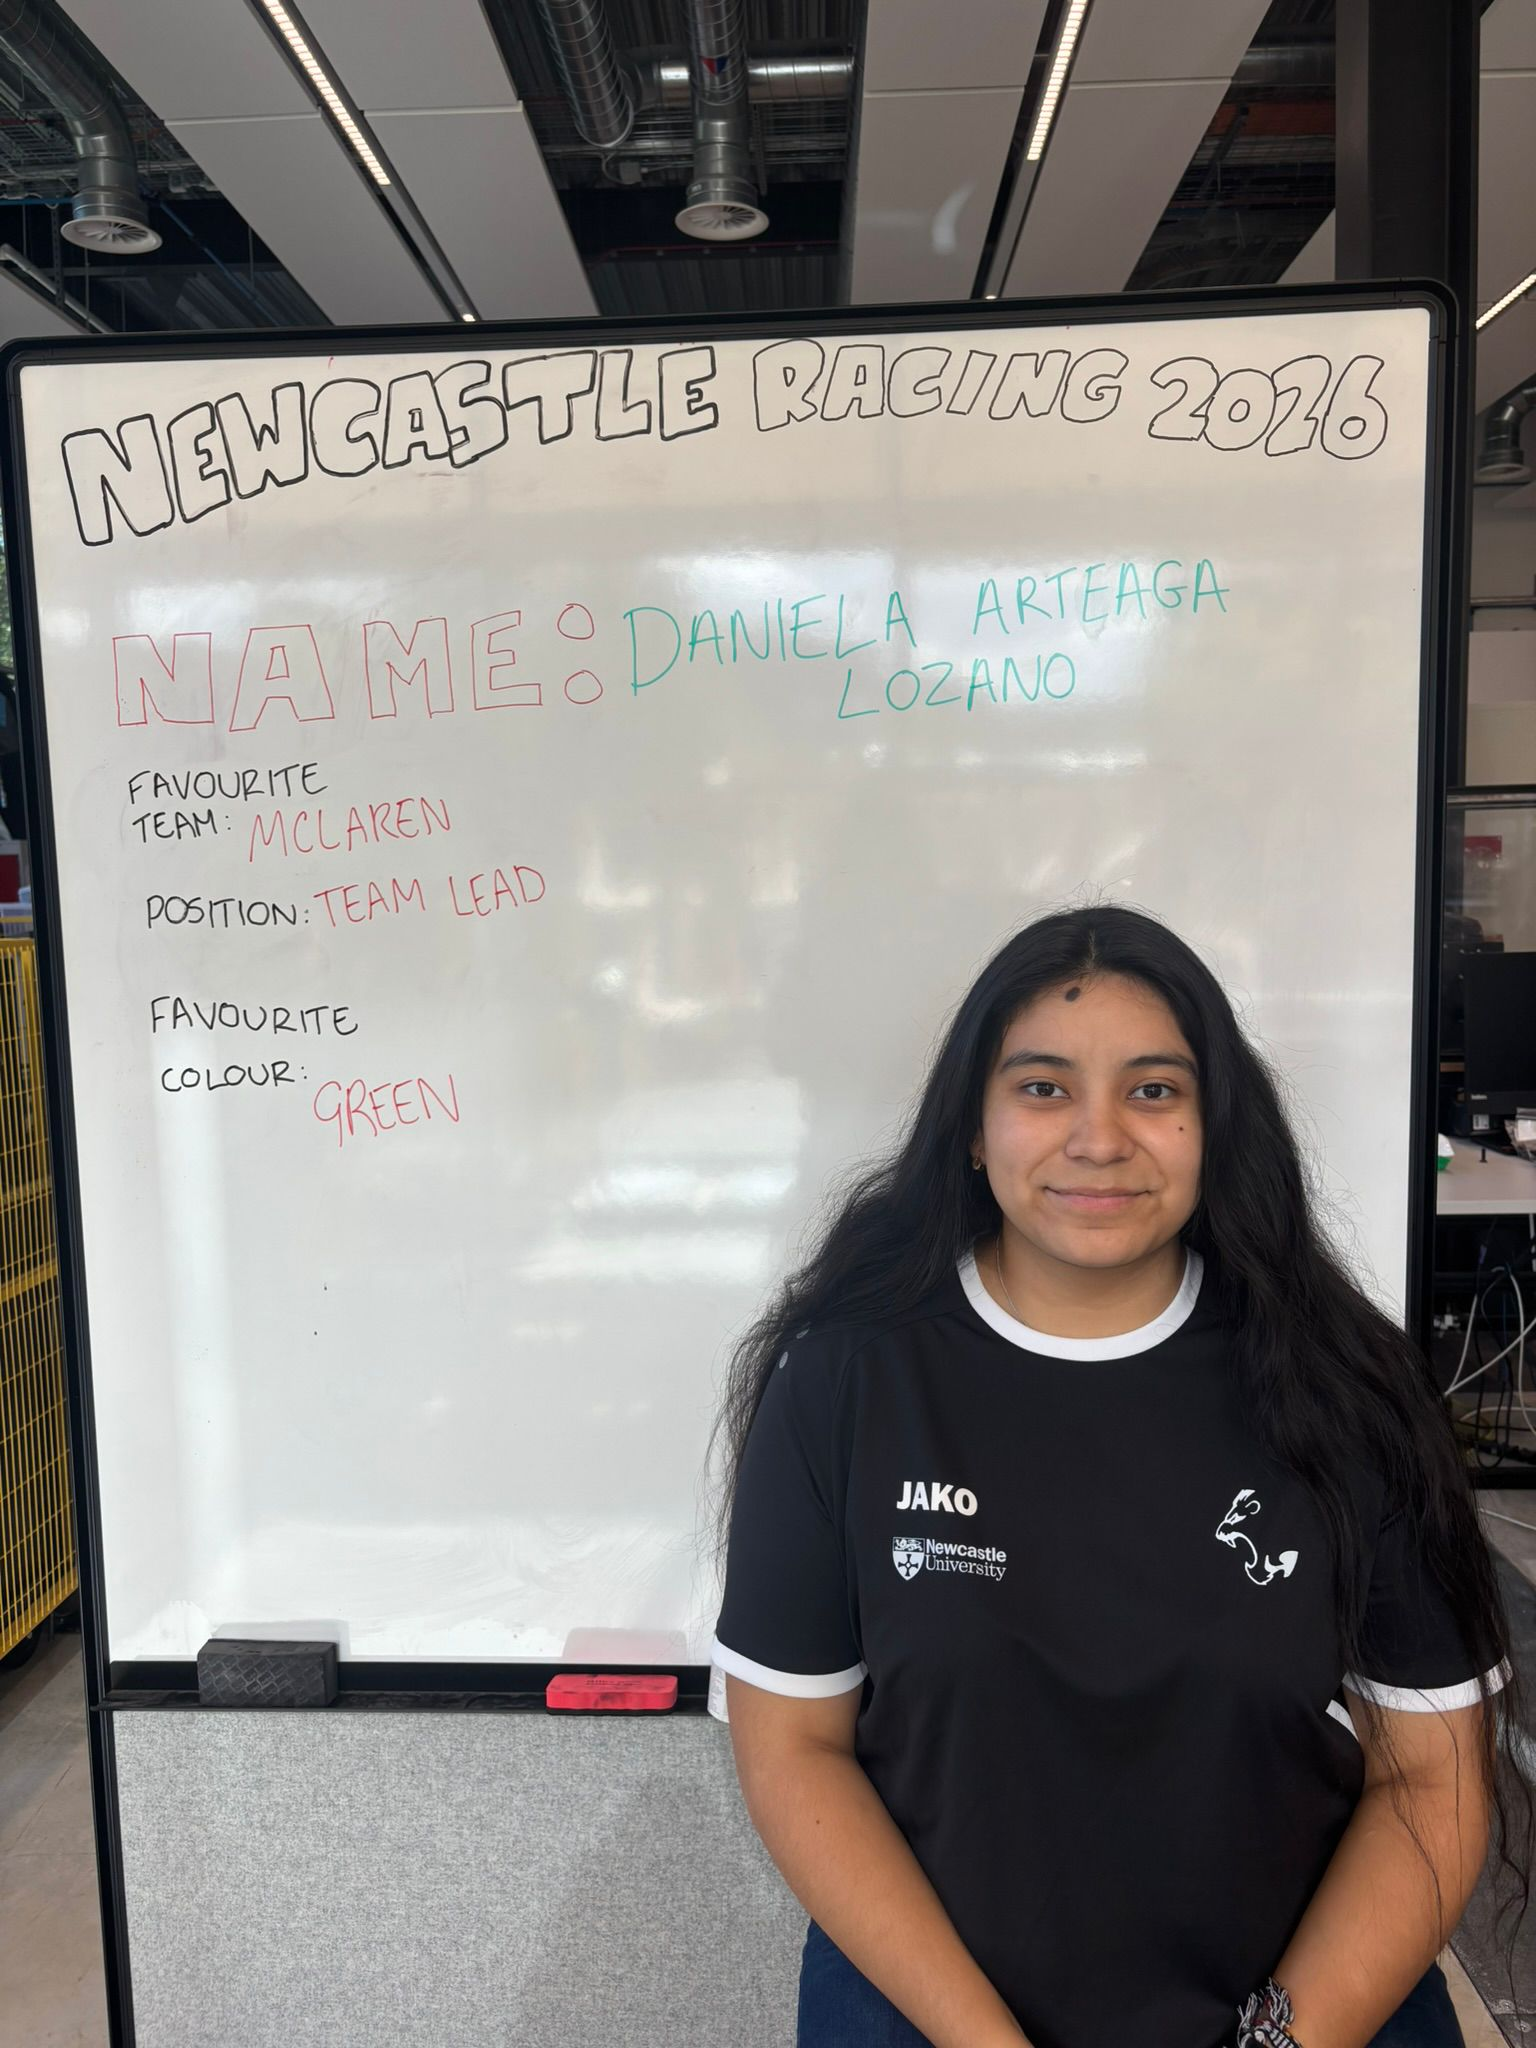 NEWCASTLE RACING 2026
NAME: DANIELA ARTEAGA
LOZANO
FAVOURITE
TEAM: MCLAREN
POSITION: TEAM LEAD
FAVOURITE
COLOUR:
GREEN
JAKO
Newcastle
University